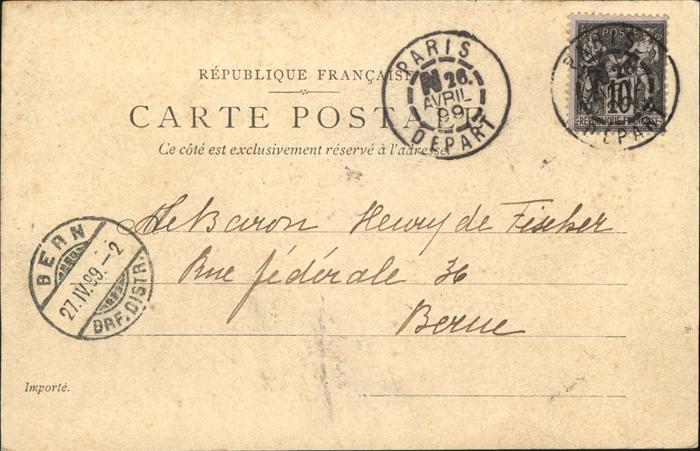 POSTES
10
RÉPUBLIQUE FRANÇAISE
PARIS
N 26.
AVRIL
99
DÉPART
PARIS
DÉPART
RÉPUBLIQUE FRANÇAISE
CARTE POSTALE
Ce côté est exclusivement réservé à l'adresse
Le Baron Henry de Fischer
Rue fédérale 36
Berne
BERN
27.IV.99.-2
BRF.DISTR.
Importé.